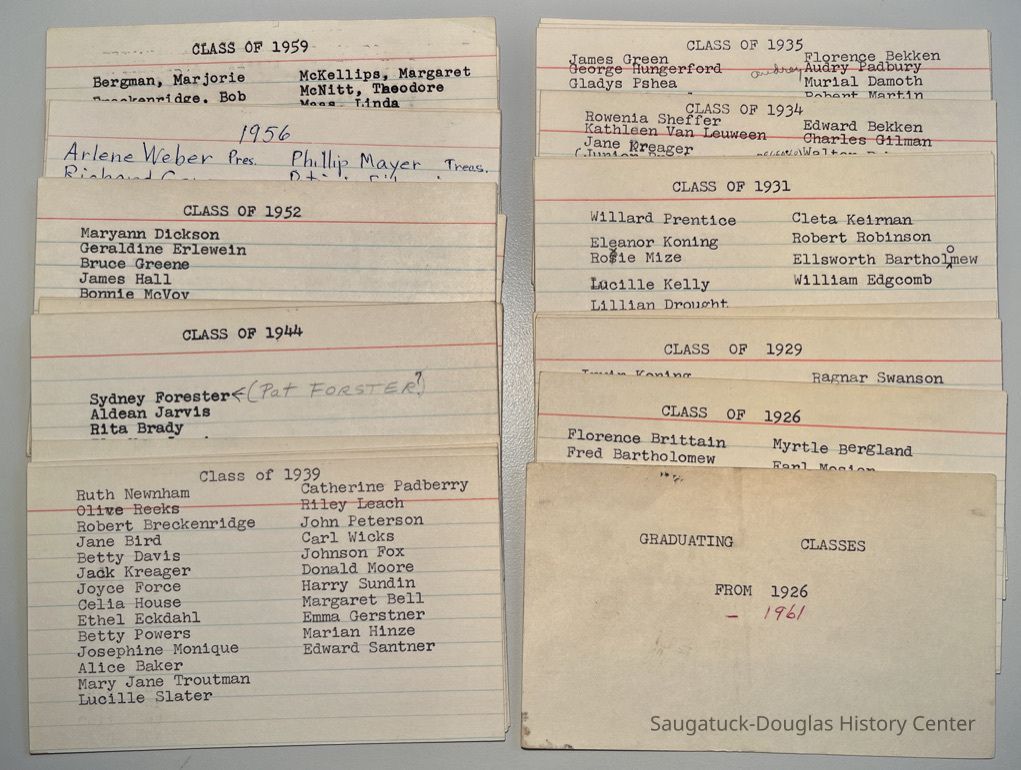 CLASS OF 1959
Bergman, Marjorie
Breckenridge, Bob
McKellips, Margaret
McNitt, Theodore
Maas, Linda
1956
Arlene Weber Pres.
Richard
Phillip Mayer Treas.
CLASS OF 1952
Maryann Dickson
Geraldine Erlewein
Bruce Greene
James Hall
Bonnie McVoy
CLASS OF 1944
Sydney Forester ←(Pat FORSTER?)
Aldean Jarvis
Rita Brady
Class of 1939
Ruth Newnham
Olive Reeks
Robert Breckenridge
Jane Bird
Betty Davis
Jack Kreager
Joyce Force
Celia House
Ethel Eckdahl
Betty Powers
Josephine Monique
Alice Baker
Mary Jane Troutman
Lucille Slater
Catherine Padberry
Riley Leach
John Peterson
Carl Wicks
Johnson Fox
Donald Moore
Harry Sundin
Margaret Bell
Emma Gerstner
Marian Hinze
Edward Santner
CLASS OF 1935
James Green
George Hungerford
Gladys Pshea
Florence Bekken
audrey Audry Padbury
Murial Damoth
Robert Martin
CLASS OF 1934
Rowenia Sheffer
Kathleen Van Leuween
Jane Kreager
(Junior
Edward Bekken
Charles Gilman
Walter
CLASS OF 1931
Willard Prentice
Eleanor Koning
Rosie Mize
Lucille Kelly
Lillian Drought
Cleta Keirnan
Robert Robinson
Ellsworth Bartholomew
William Edgcomb
CLASS OF 1929
Irwin Koning
Ragnar Swanson
CLASS OF 1926
Florence Brittain
Fred Bartholomew
Myrtle Bergland
Earl Mosier
GRADUATING CLASSES
FROM 1926
- 1961
Saugatuck-Douglas History Center